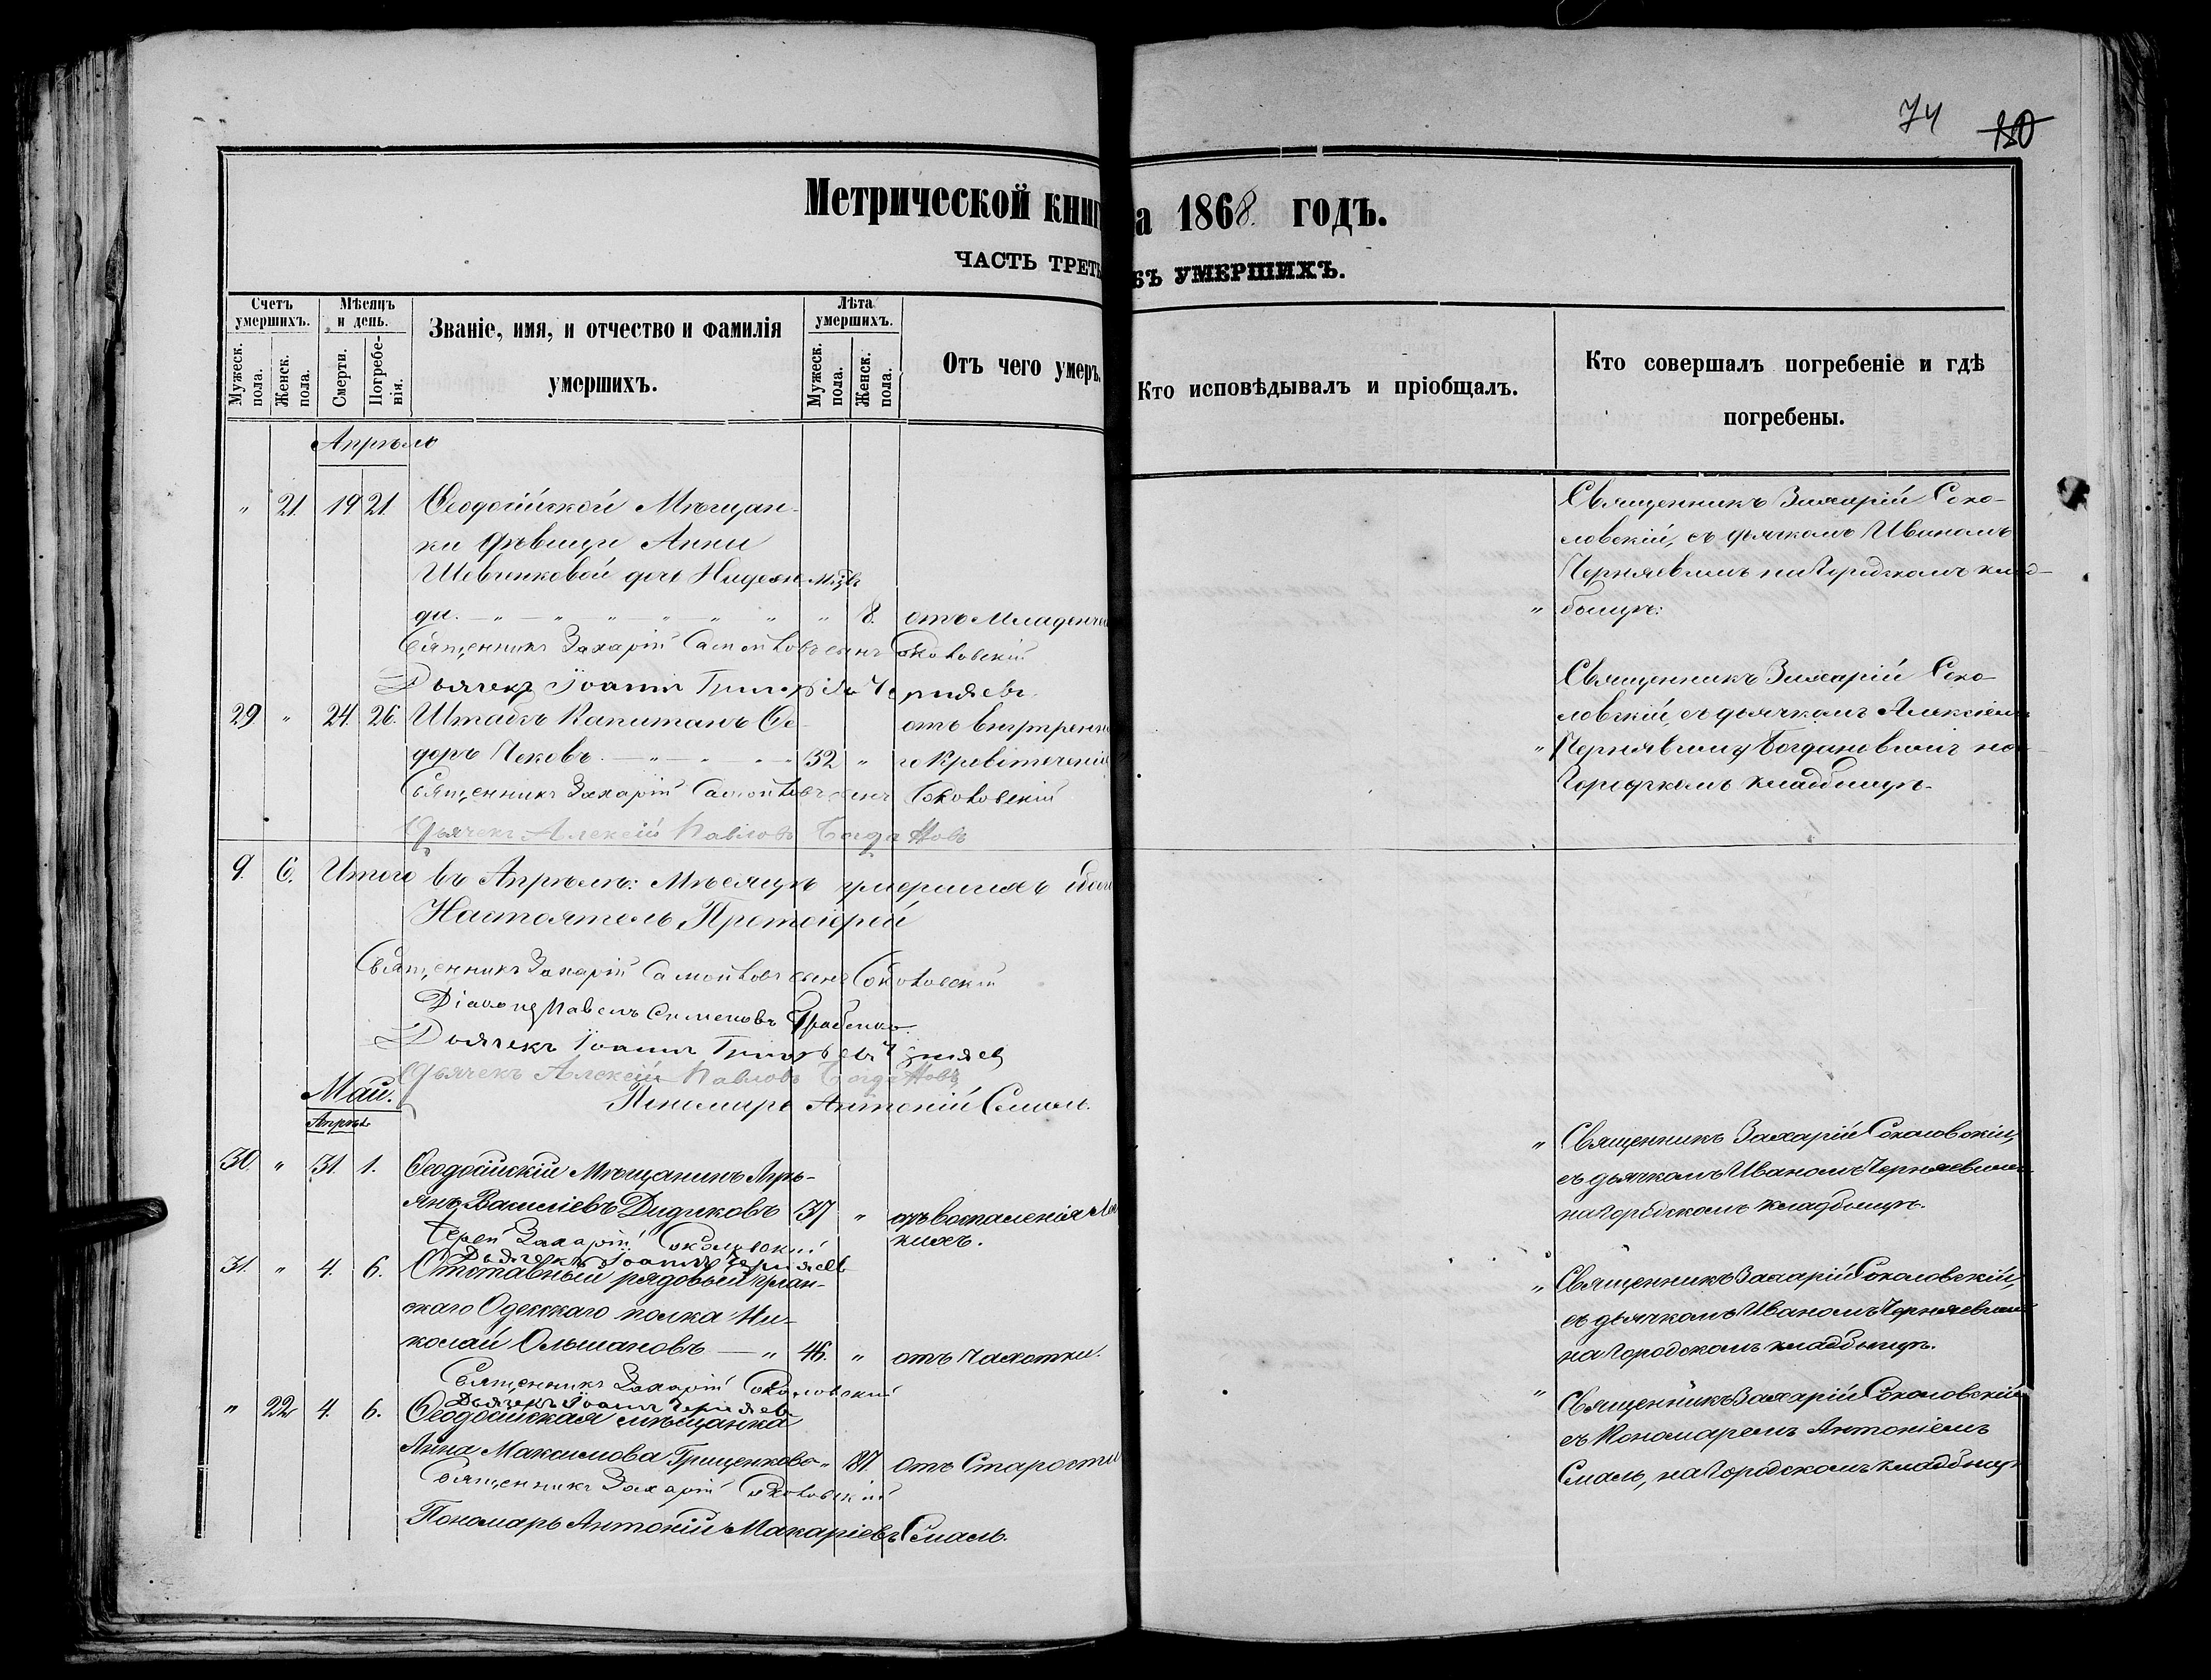 74 180
Метрической книг а 1868. годъ.
ЧАСТЬ ТРЕТЬ БЪ УМЕРШИХЪ.
Счетъ умершихъ.
Мужеск. пола.
Женск. пола.
Мѣсяцъ и день.
Смерти.
Погребе-нія.
Званіе, имя, и отчество и фамилія
умершихъ.
Лѣта умершихъ.
Мужеск. пола.
Женск. пола.
Отъ чего умеръ.
Кто исповѣдывалъ и пріобщалъ.
Кто совершалъ погребеніе и гдѣ
погребены.
Апрѣль
" 21. 19 21. Ѳеодосійской Мѣщан-
ки дѣвицы Анны
Шевчнковой дочь Надеж- мѣс.
да. " 8. отъ Младенче
Священникъ Захарій Самойловъ сынъ Соколовскій
Дьячекъ Іоаннъ Григорьевъ Черняевъ
Священникъ Захарій Соко-
ловскій, съ дьячкомъ Иваномъ
Черняевымъ на Городскомъ клад-
" бищѣ:
29. " 24. 26. Штабсъ Капитанъ Ѳе- отъ внутренн
доръ Чековъ. 32 " го Кровітеченія
Священникъ Захарій Самойловъ сынъ Соколовскій
Дьячекъ Алексій Павловъ Богдановъ
Священникъ Захарій Соко-
ловскій, съ дьячкомъ Алексіемъ
" Богдановымъ на
Городскомъ кладбищѣ.
9. 6. Итого въ Апрѣлѣ: Мѣсяцѣ умершихъ обоего
Настоятель Протоіерей
Священникъ Захарій Самойловъ сынъ Соколовскій
Діаконъ Павелъ Сименовъ
Дьячекъ Іоаннъ Григорьевъ Черняевъ
Дьячекъ Алексій Павловъ Богдановъ
Пономарь Антоній Смаль.
Май.
Апрѣль
30. " 31. 1. Ѳеодосійскій Мѣщанинъ Лукь-
янъ Василіевъ Дидиковъ 37 " отъ воспаленія Ле
кихъ.
Іерей Захарій Соколовскій
Дьячекъ Іоаннъ Черняевъ
" Священникъ Захарій Соколовскій,
съ дьячкомъ Иваномъ Черняевымъ
на Городскомъ кладбищѣ.
31. " 4. 6. Отставный рядовый Улан-
скаго Одесскаго полка Ни-
колай Ольшановъ — " 46. " отъ чахотки.
Священникъ Захарій Соколовскій
Дьячекъ Іоаннъ Черняевъ
" Священникъ Захарій Соколовскій,
съ дьячкомъ Иваномъ Черняевымъ
на Городскомъ кладбищѣ.
" 22 4. 6. Ѳеодосійская мѣщанка
Анна Максимова Грищенкова " 87. отъ Старости
Священникъ Захарій Соколовскій
Пономарь Антоній Макаріевъ Смаль.
" Священникъ Захарій Соколовскій
съ Пономаремъ Антоніемъ
Смаль, на Городскомъ кладбищѣ